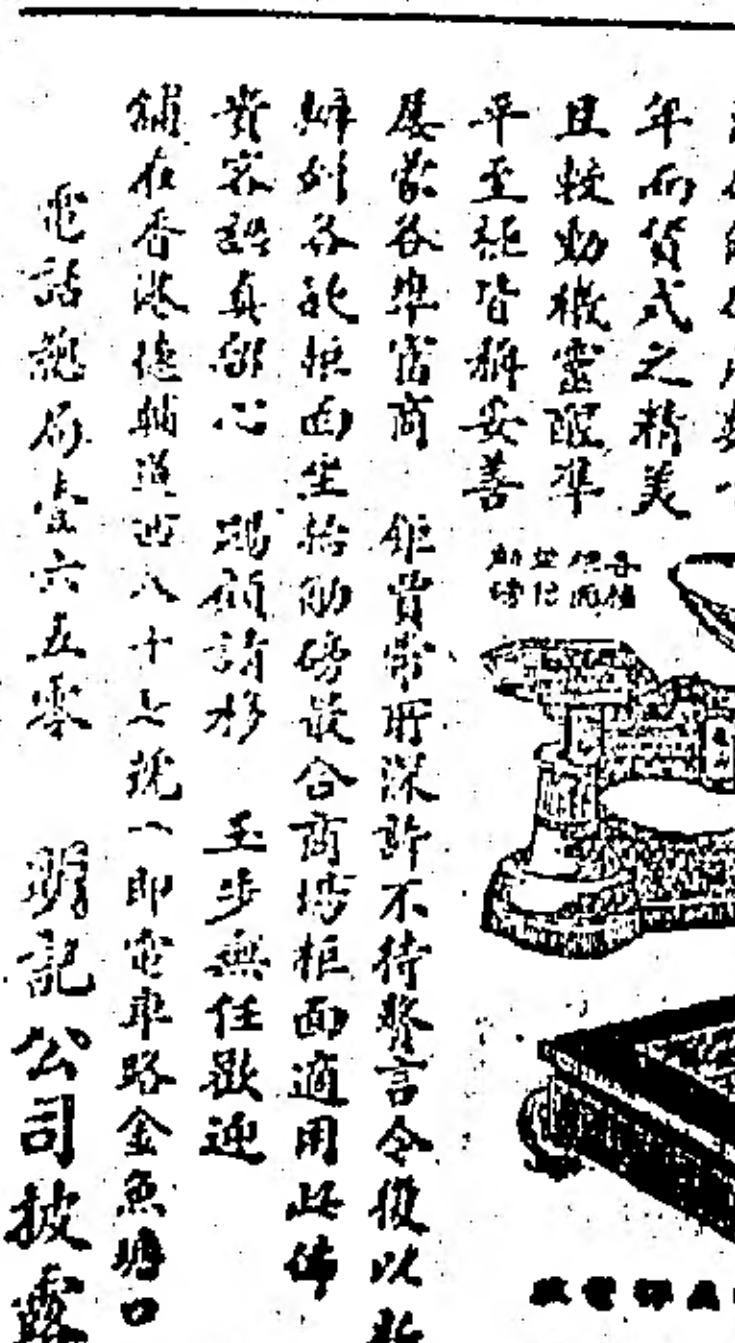 年而貨式之精美
且較動機靈醒準
平至鉅皆稱妥善
屢蒙各準富商 鉅賈常所深許不待贅言今復以新
辦到各款柜面坐枱觔磅最合商場柜面適用此佈
貴客認真留心 賜顧請移 玉步無任歡迎
舖在香港德輔道西八十七號(即電車路金魚塘口
電話總局壹六五零 明記公司披露
各種
柜面
坐枱
觔磅